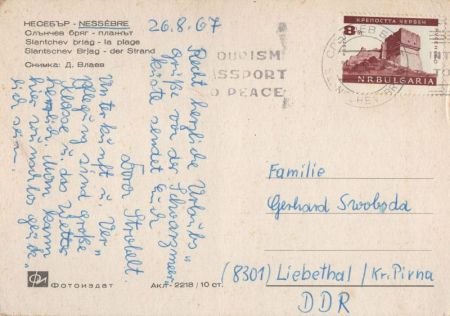 НЕСЕБЪР - NESSÈBRE
Слънчев бряг - плажът
Slantchev briag - la plage
Slantschev Brjag - der Strand
Снимка: Д. Влаев
26.8.67
Recht herzliche Urlaubs-
grüße von der Schwarzmeer-
küste sendet Euch
Dora Strobelt.
Unterkunft u. Ver-
pflegung sind große
Klasse u. das Wetter
herrlich. Man kann
hier wunschlos glück-
lich sein.
TOURISM
PASSPORT
TO PEACE
КРЕПОСТТА ЧЕРВЕН
8
N.R.BULGARIA
Familie
Gerhard Swoboda
(8301) Liebethal / Kr. Pirna
DDR
Фотоиздат
Акл - 2218 / 10 ст.